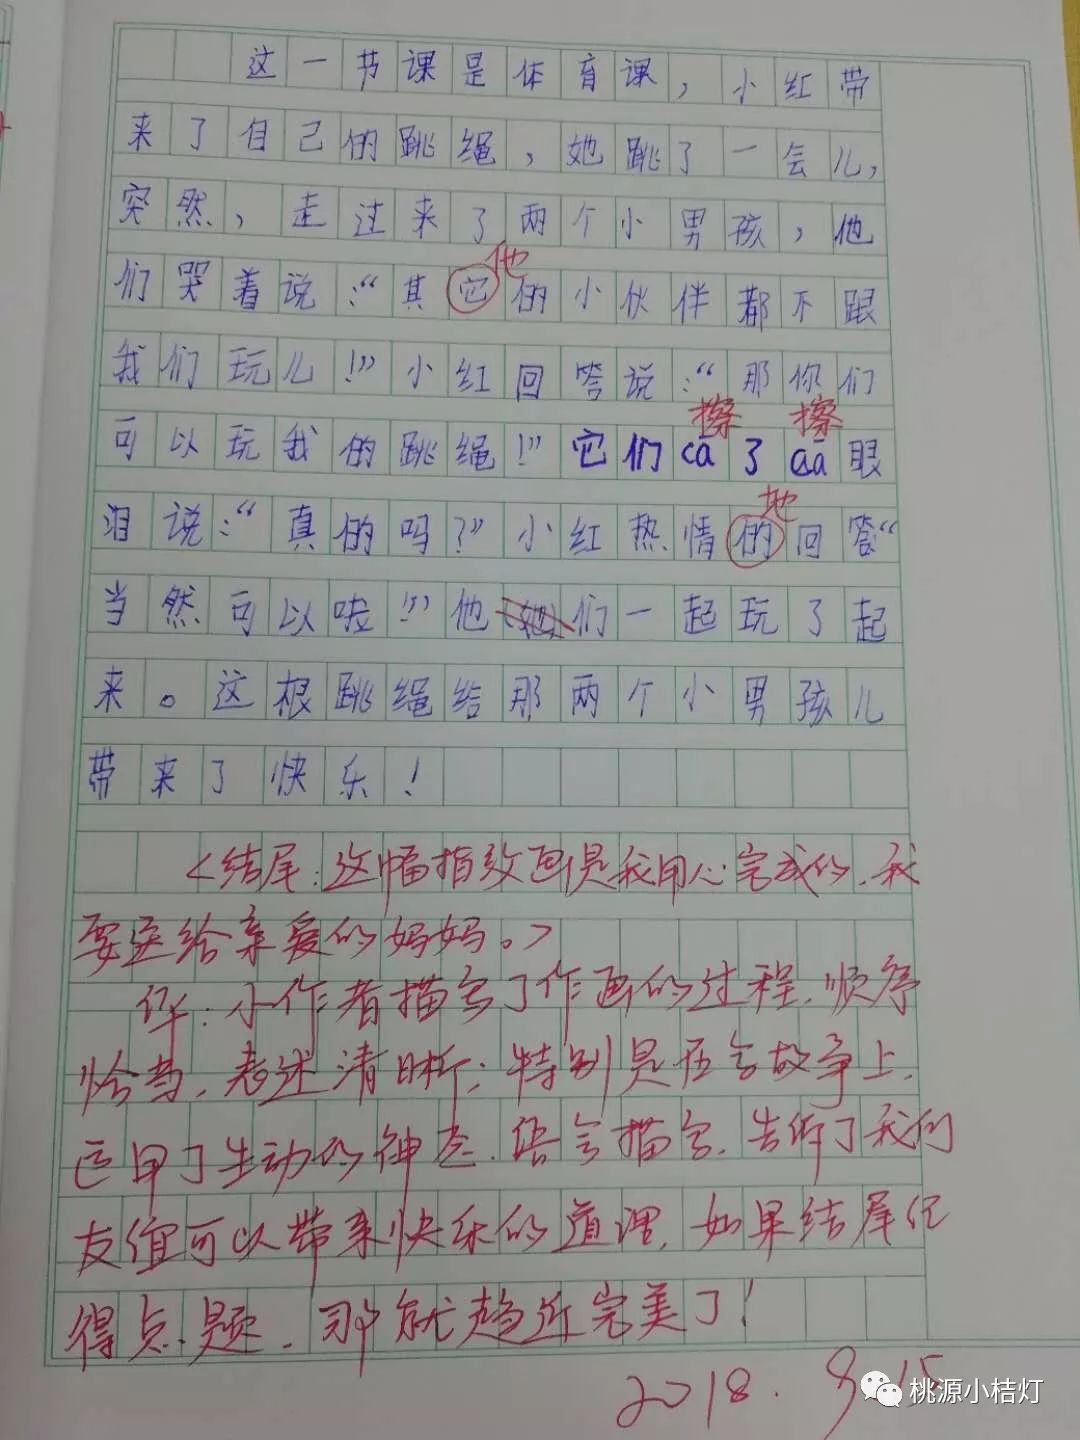 这一节课是体育课，小红带
来了自己的跳绳，她跳了一会儿，
突然，走过来了两个小男孩，他
他
们哭着说：“其它的小伙伴都不跟
我们玩儿！”小红回答说：“那你们
擦 擦
可以玩我的跳绳！”它们cā了cā眼
地
泪说：“真的吗？”小红热情的回答“
当然可以啦！”他(她)们一起玩了起
来。这根跳绳给那两个小男孩儿
带来了快乐！
<结尾：这幅指纹画是我用心完成的，我
要送给亲爱的妈妈。>
评：小作者描写了作画的过程，顺序
恰当，表述清晰；特别是在写故事上，
运用了生动的神态、语言描写，告诉了我们
友谊可以带来快乐的道理，如果结尾记
得点题，那就趋近完美了！
2018.9.15
桃源小桔灯